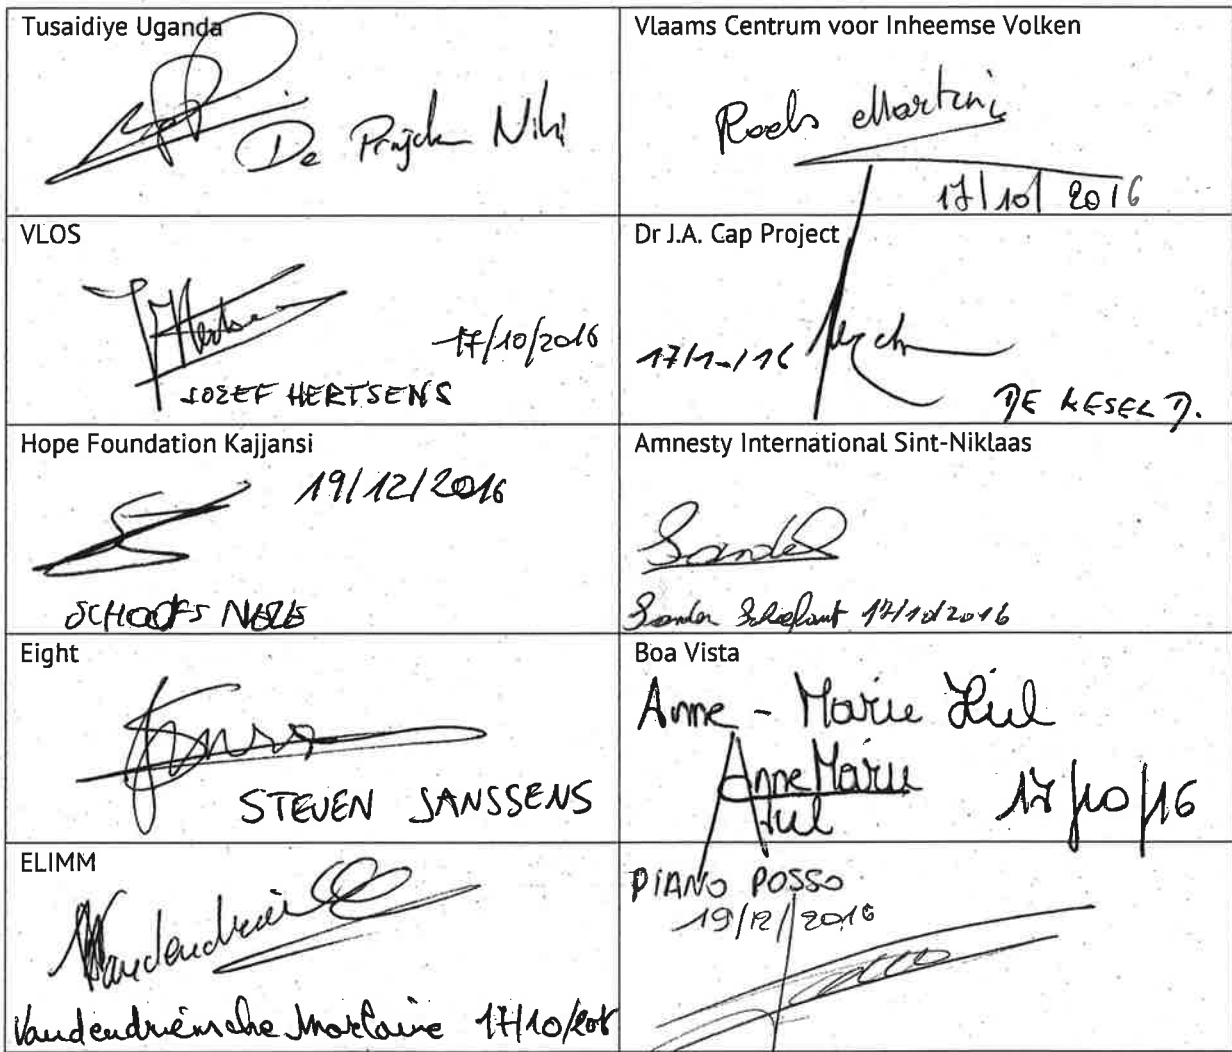 Tusaidiye Uganda
De Prijck Niki
Vlaams Centrum voor Inheemse Volken
Roels Martine
17/10/2016
VLOS
17/10/2016
JOZEF HERTSENS
Dr J.A. Cap Project
17/10/16
DE KESEL D.
Hope Foundation Kajjansi
19/12/2016
SCHOOFS NELE
Amnesty International Sint-Niklaas
Sander
Sander 17/10/2016
Eight
STEVEN JANSSENS
Boa Vista
Anne-Marie Hul
Anne Marie
Hul
17/10/16
ELIMM
Vandendriessche 17/10/201
PIANO POSSO
19/12/2016